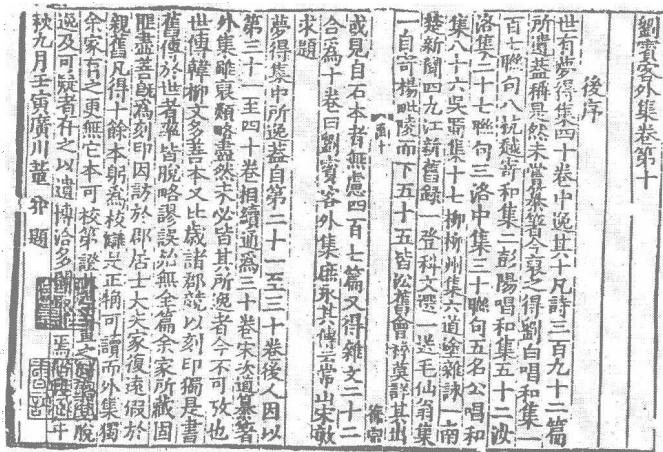 劉賓客外集卷第十
後序
世有夢得集四十卷中逸其十凡詩三百九十二篇
所遺蓋稱是然未嘗纂著今裒之得劉白唱和集一
百七聯句八杭越寄和集二彭陽唱和集五十二汝
洛集二十七聯句三洛中集三十聯句五名公唱和
集八十六吳蜀集十七柳柳州集六道塗雜詠一南
楚新聞四九江新舊錄一登科文選一送毛仙翁集
一自寄楊毗陵而下五十五皆沿舊會稡莫詳其出
或見自石本者無慮四百七篇又得雜文二十二
合為十卷曰劉賓客外集庶永其傳云常山宋敏
求題
夢得集中所逸蓋自第二十一至三十卷後人因以
第三十一至四十卷相續通為三十卷宋次道纂著
外集雖裒類略盡然未必皆其所逸者今不可攷也
世傳韓柳文多善本又比歲諸郡競以刻印獨是書
舊傳於世者率皆脫略謬誤殆無全篇余家所藏固
匪盡善既為刻印因訪於郡居士大夫家復遠假於
親舊凡得十餘本躬為校讎是正稍可讀而外集獨
余家有之更無它本可校第證 脫
逸及可疑者存之以遺博洽多聞 焉 年
秋九月壬寅廣川董弅題